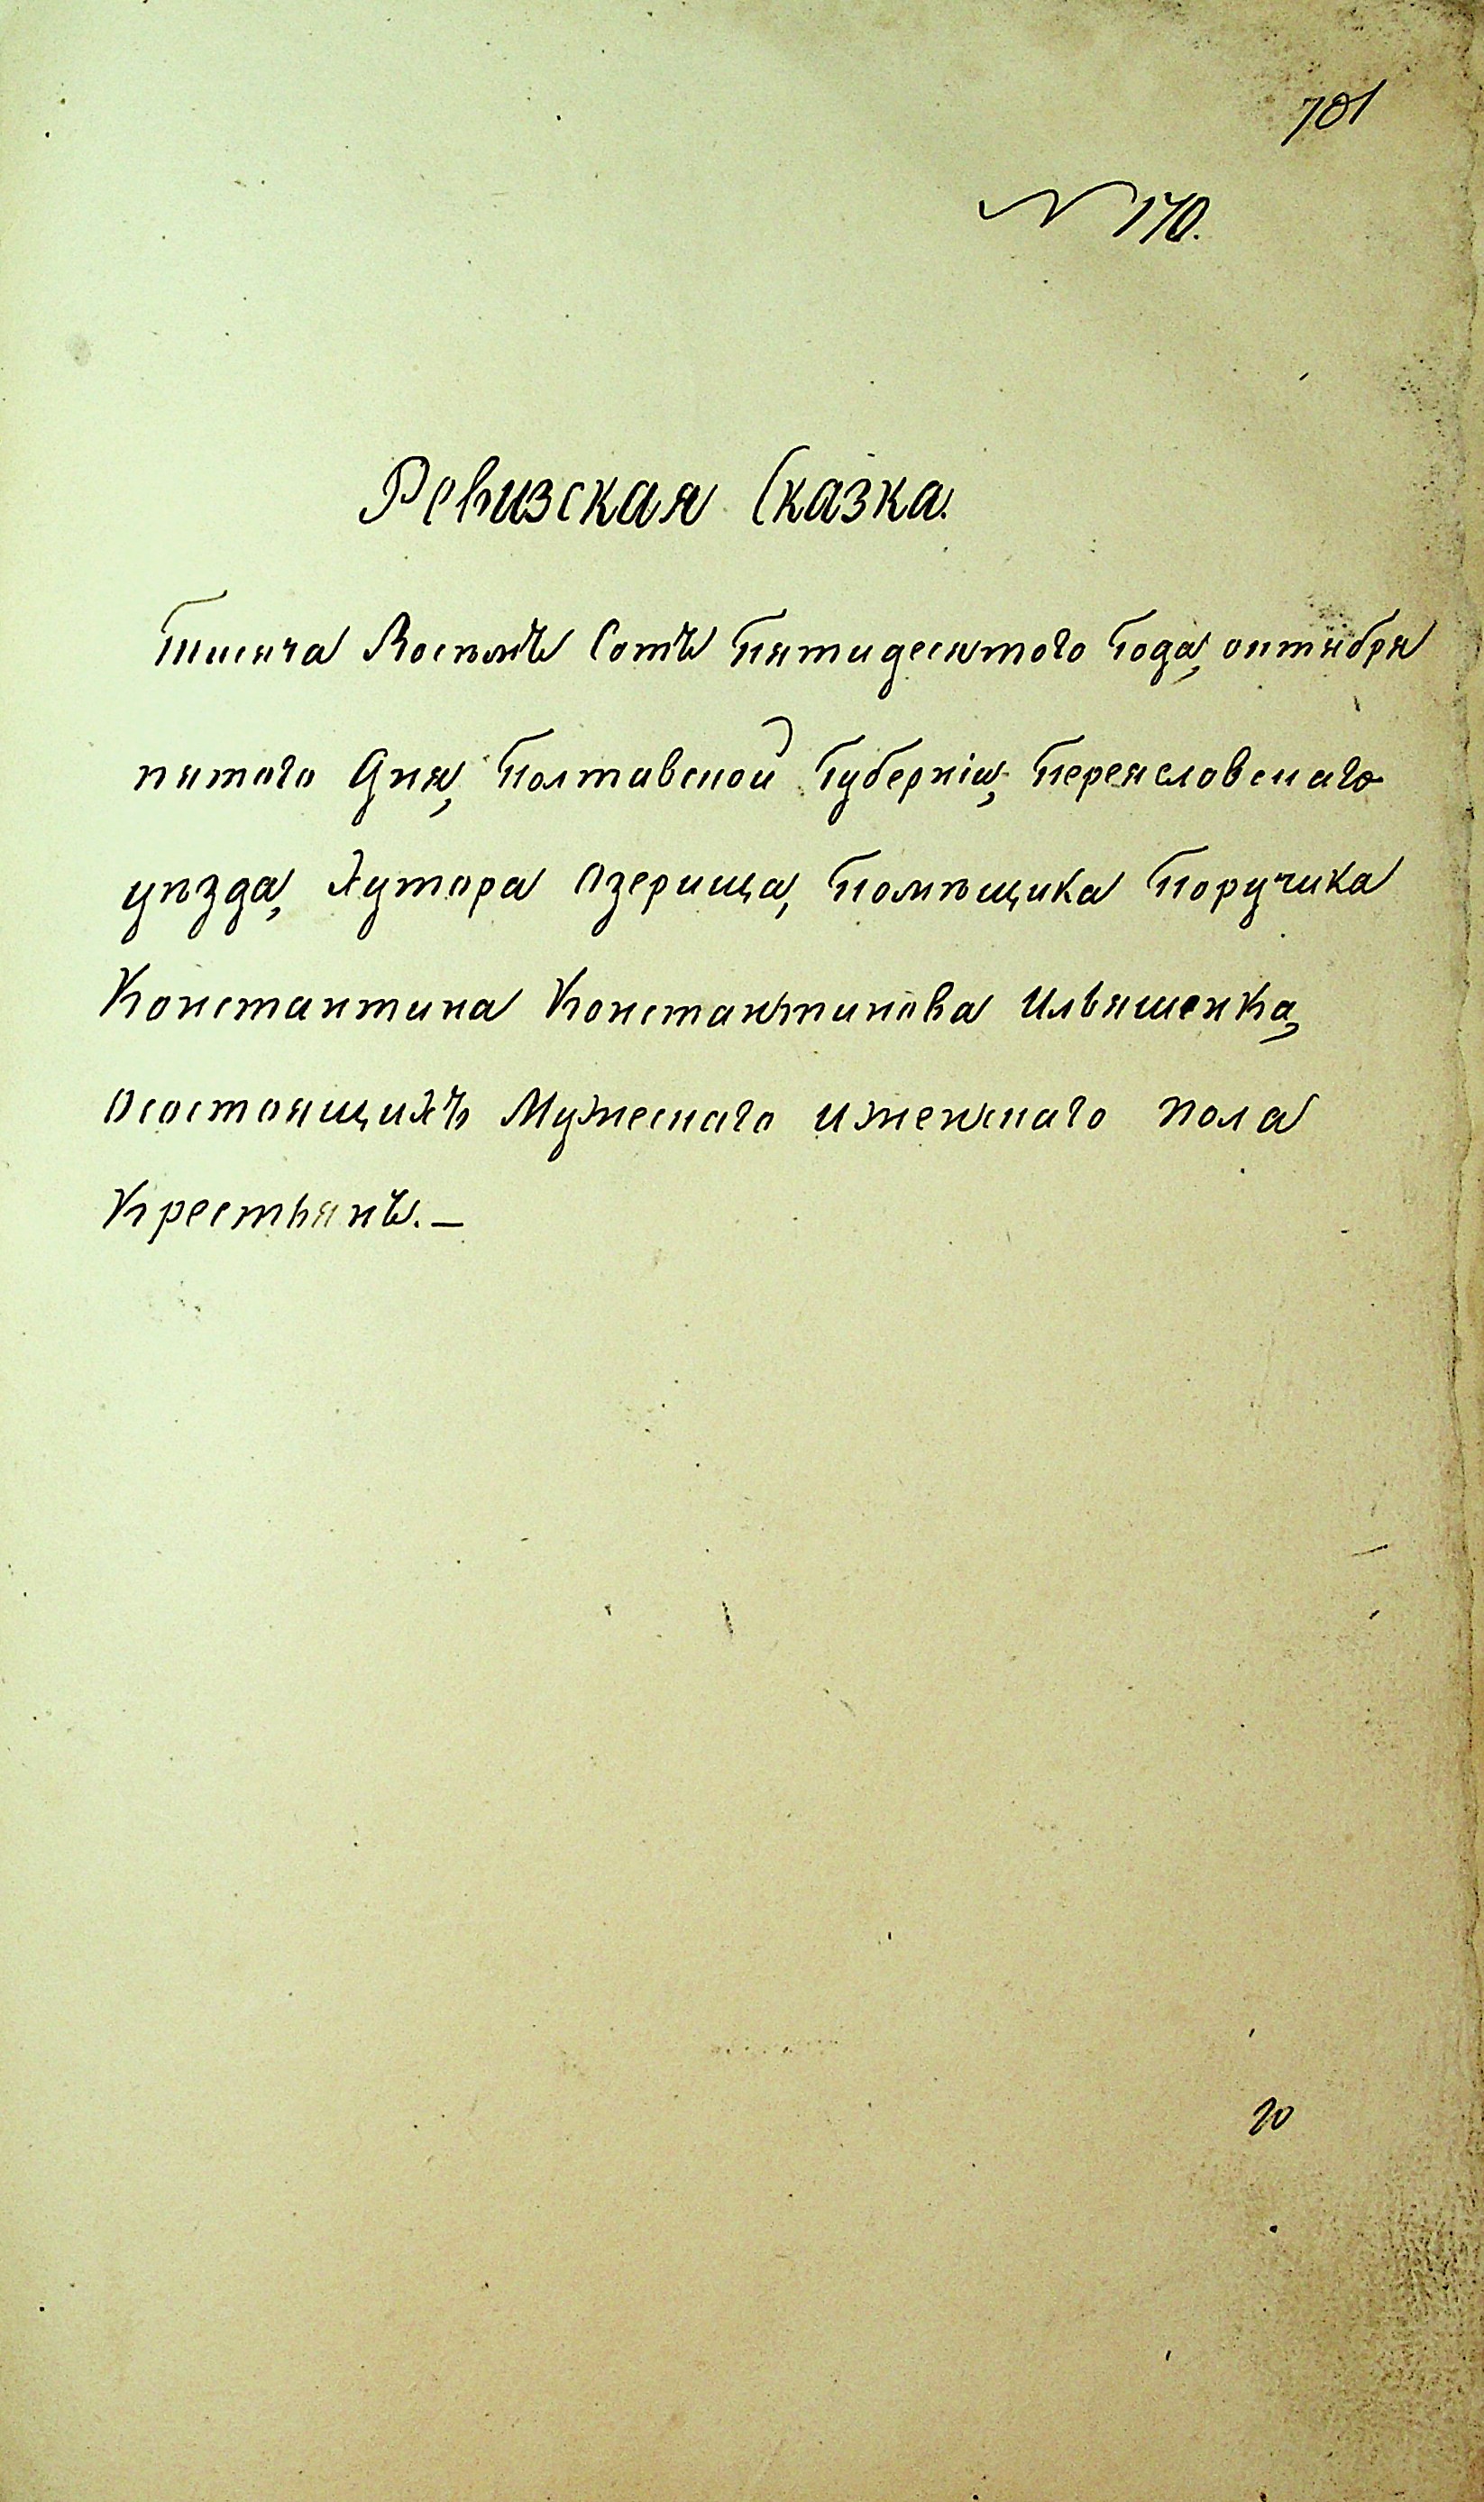 701
N 170.
Ревизская Сказка.
Тисяча Восѣмъ Сотъ Пятидесятого Года, октября
пятого Дня, Полтавской Губерніи, Переясловскаго
уѣзда, Хутора Озерища, Помѣщика Поручика
Константина Константинова Ильяшенка,
Осостоящихъ Мужескаго иженскаго пола
Крестьянъ.—
20